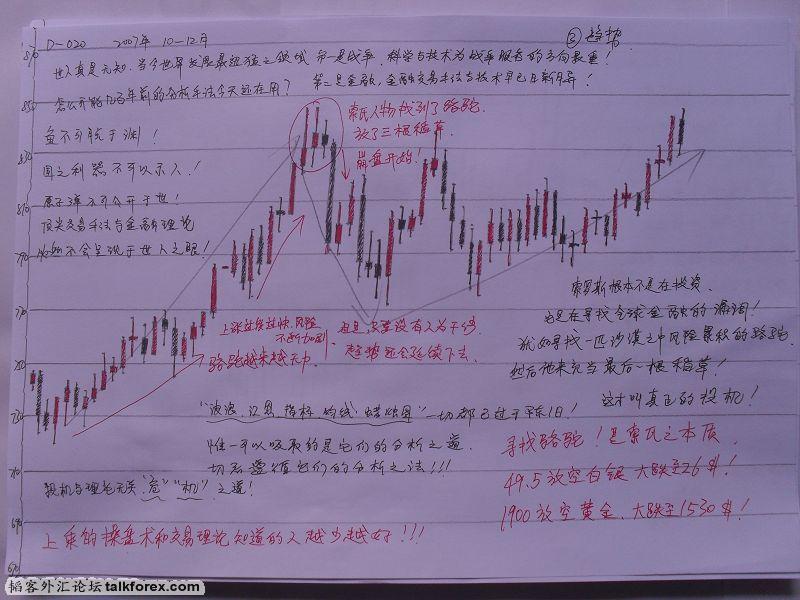 D-020 2007年 10-12月
② 趋势
世人真是无知,当今世界发展最迅猛之领域 第一是战争,科学与技术为战争服务的方向最重!
第二是金融,金融交易手法与技术早已日新月异!
怎么可能几百年前的分析手法今天还在用?
鱼不可脱于渊!
国之利器不可以示人!
原子弹不可公开于世!
顶尖交易手法与金融理论
必如不会呈现于世人之眼!
索氏人物找到了骆驼
放了三根稻草.
崩盘开始!
870
850
830
810
790
770
750
730
710
690
670
上涨越来越快,风险
不断加剧
骆驼越来越无力
但是只要没有人为干预
趋势还会延续下去.
索罗斯根本不是在投资.
他是在寻找全球金融的漏洞!
犹如寻找一匹沙漠之中风险累积的骆驼
然后他来充当最后一根稻草!
这才叫真正的投机!
"波浪,江恩,指标,均线,蜡烛图"一切都已过于陈旧!
惟一可以吸取的是它们的分析之道
切不遵循它们的分析之法!!!
投机与理论无关,"危""机"之道!
寻找骆驼!是索氏之本质.
49.5放空白银 大跌至26$!
1900放空黄金、大跌至1530$!
上乘的操盘术和交易理论知道的人越少越好!!!
韬客外汇论坛 talkforex.com